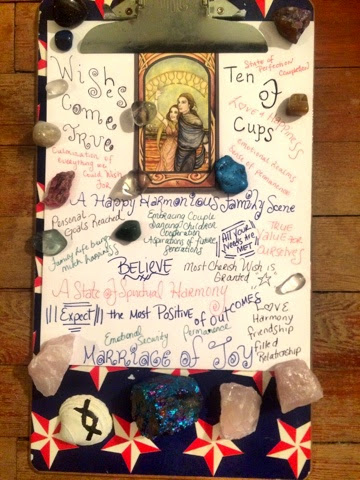 Wishes
Come
True
Culmination of
Everything one
Could Wish
For
State of
Perfection
Completed
Ten
of
Cups
Love & Happiness
Emotional dreams
State of permanence
A Happy Harmonious Family Scene
Personal
Goals Reached
Family Life brings
much happiness
Embracing Couple
Dancing Children
Cooperation
Aspirations of future
generations
All Your
Needs are
MET
TRUE
Value FOR
OURSELVES
BELIEVE
Most Cherish Wish is
Granted
A State of Spiritual Harmony
Expect the Most Positive of OUTCOMES
Emotional
Security
Permanence
LOVE
Harmony
friendship
filled
Relationship
Marriage of Joy